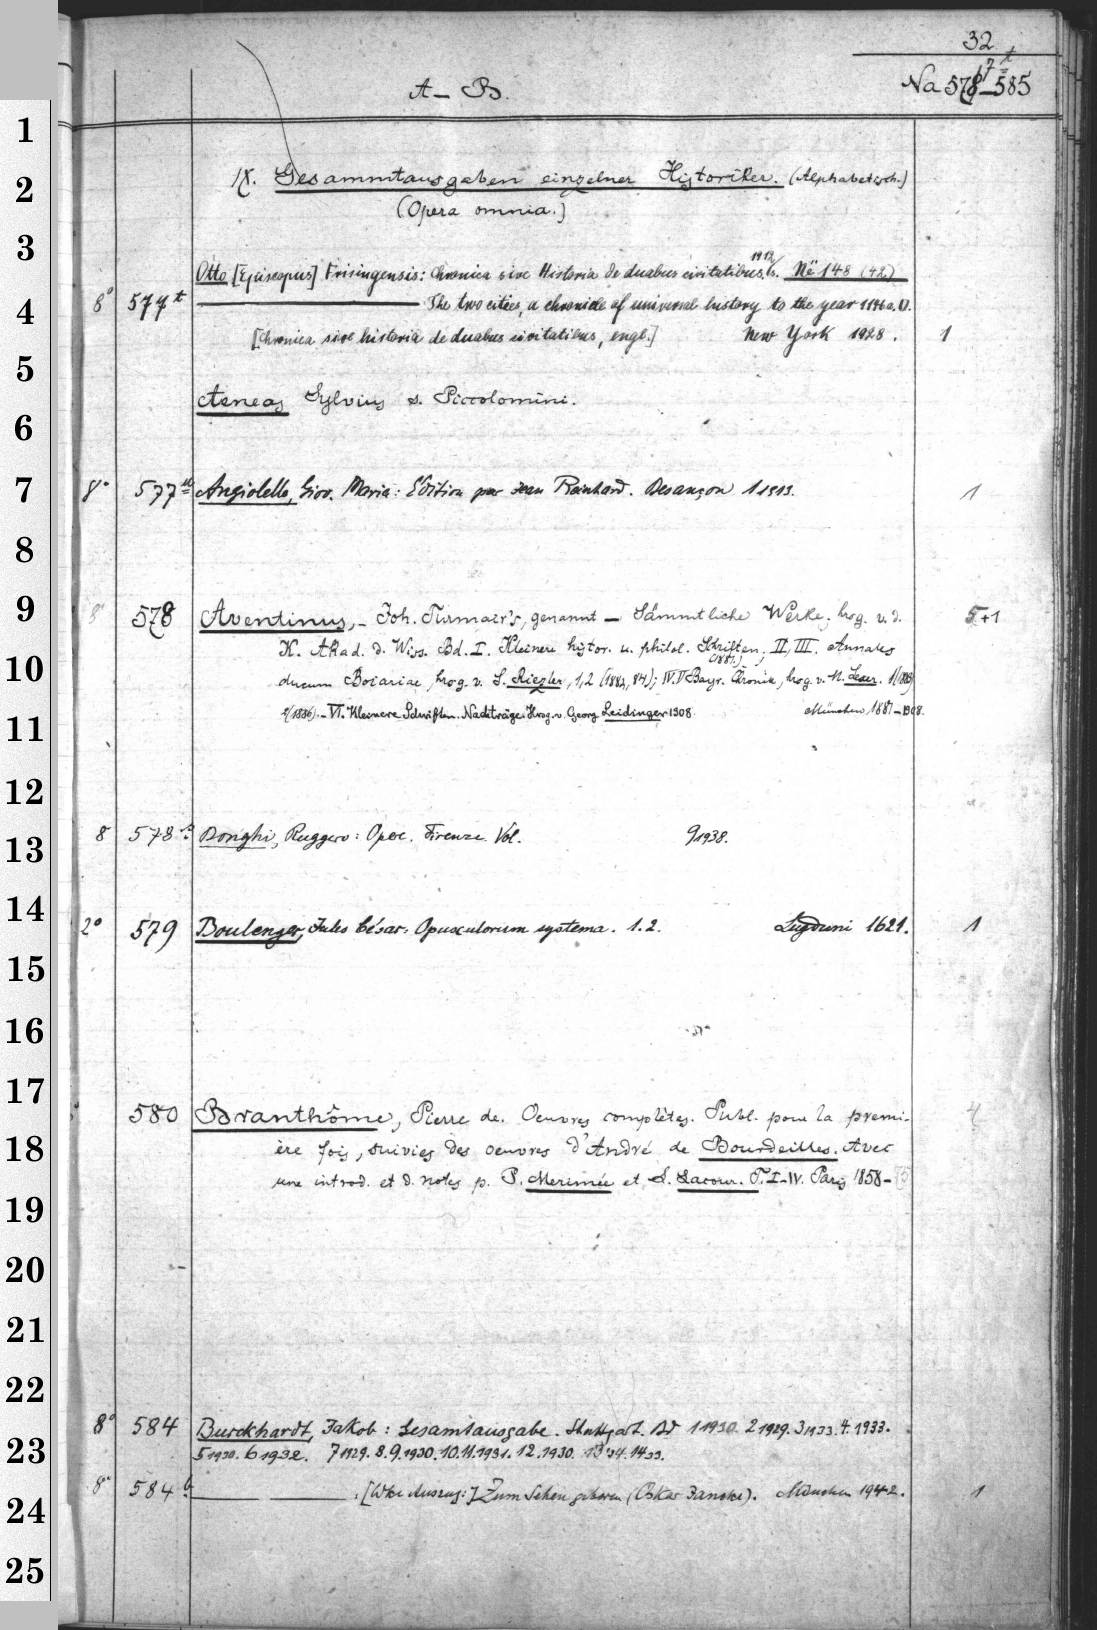 32
A – B.
Na 578–585
1
IX. Gesammtausgaben einzelner Historiker. (Alphabetisch.)
2
(Opera omnia.)
3
1912
Otto [Episcopus] Frisingensis: Chronica sive Historia de duabus civitatibus. Në 148 (42)
4
8° 577 t ——— The two cities, a chronicle of universal history to the year 1146 a. D.
[Chronica sive historia de duabus civitatibus, engl.] New York 1928. 1
5
Aeneas Sylvius s. Piccolomini.
6
7
8° 577 Angiolello, Giov. Maria: Édition par Jean Reinhard. Besançon 1 1913. 1
8
9
8° 578 Aventinus, – Joh. Turmair's, genannt – Sämmtliche Werke, hrsg. v. d. 5+1
K. Akad. d. Wiss. Bd. I. Kleinere histor. u. philol. Schriften; II, III. Annales
(1881.)
10
ducum Boiariae, hrsg. v. S. Riezler, 1,2 (1882, 84); IV. V Bayr. Chronik, hrsg. v. M. Lexer. 1/(1883)
2/(1886). – VI. Kleinere Schriften. Nachträge. Hrsg. v. Georg Leidinger 1908. München 1881–1908.
11
12
13
8 578 Bonghi, Ruggero: Opere. Firenze. Vol. 9 1938.
14
2° 579 Boulenger, Jules César. Opusculorum systema. 1.2. Lugduni 1621. 1
15
16
17
580 Branthôme, Pierre de. Oeuvres complètes. Publ. pour la premi- 4
18
ère fois, suivies des oeuvres d'André de Bourdeilles. Avec
une introd. et d. notes p. P. Merimée et L. Lacour. T. I–IV. Paris 1858–
19
20
21
22
8° 584 Burckhardt, Jakob: Gesamtausgabe. Stuttgart. Bd 1 1930. 2 1929. 3 1933. 4. 1933.
23
5 1930. 6 1932. 7 1929. 8. 9. 1930. 10. 11. 1931. 12. 1930. 13 34. 14 33.
8° 584 b. ——— ———. [Wke Auszug:] Zum Sehen geboren (Oskar Jancke). München 1942. 1
24
25